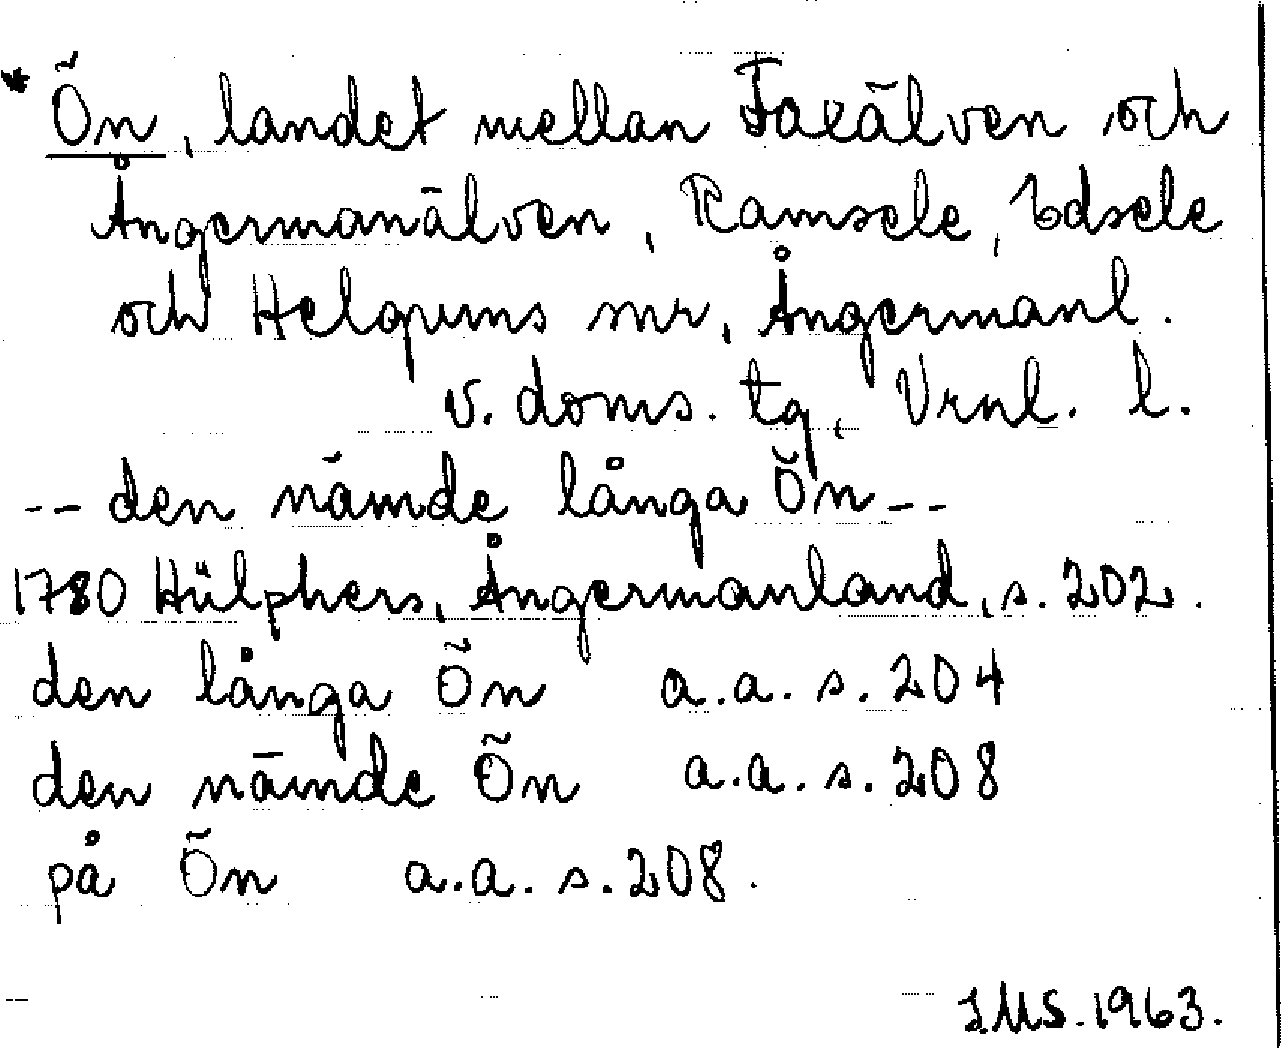 * Ön, landet mellan Faxälven och
Ångermanälven, Ramsele, Edsele
och Helgums snr, Ångermanl.
v. doms. tg, Vrnl. l.
-- den nämde långa Ön --
1780 Hülphers, Ångermanland, s. 202.
den långa Ön a.a. s. 204
den nämde Ön a.a. s. 208
på Ön a.a. s. 208.
IMS. 1963.